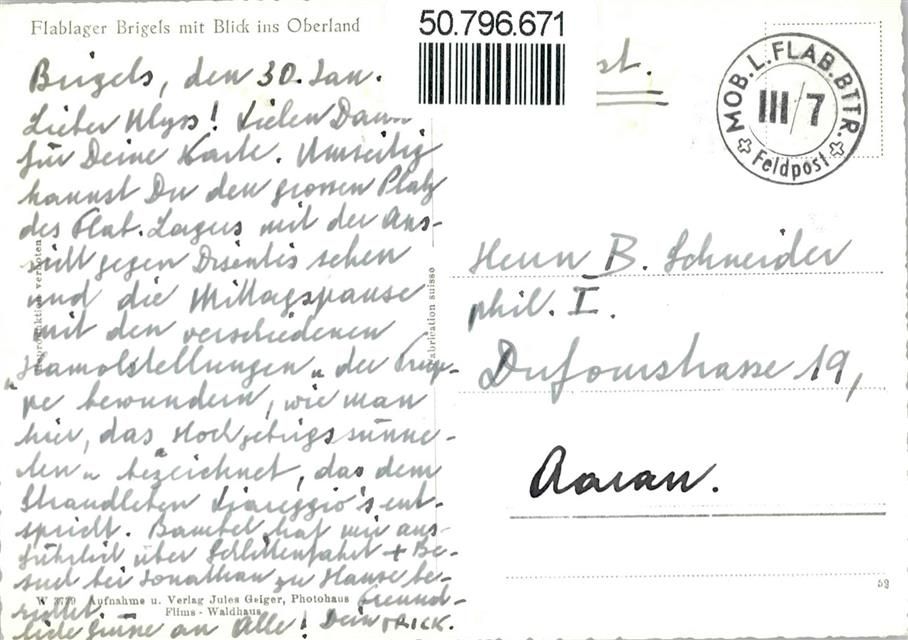 Flablager Brigels mit Blick ins Oberland
50.796.671
st.
MOB. L. FLAB. BTTR.
III/7
Feldpost
Brigels, den 30. Jan.
Lieber Ulyss! Vielen Dank
für Deine Karte. Umseitig
kannst Du den grossen Platz
des Flab. Lagers mit der Aus-
sicht gegen Disentis sehen
und die Mittagspause
mit den verschiedenen
"Stellungen" der Trup-
pe bewundern, wie man
hier, das "Hochgebirgssünne-
len" bezeichnet, das dem
Strandleben Viareggio's ent-
spricht. hat mir aus-
führlich über Schlittenfahrt + Be-
such bei Jonathan zu Hause be-
richtet. Freund-
liche Grüsse an Alle! Dein
Reproduktion verboten
Fabrication suisse
Herrn B. Schneider
phil. I.
Dufourstrasse 19,
Aarau.
W 3739 Aufnahme u. Verlag Jules Geiger, Photohaus
Flims - Waldhaus